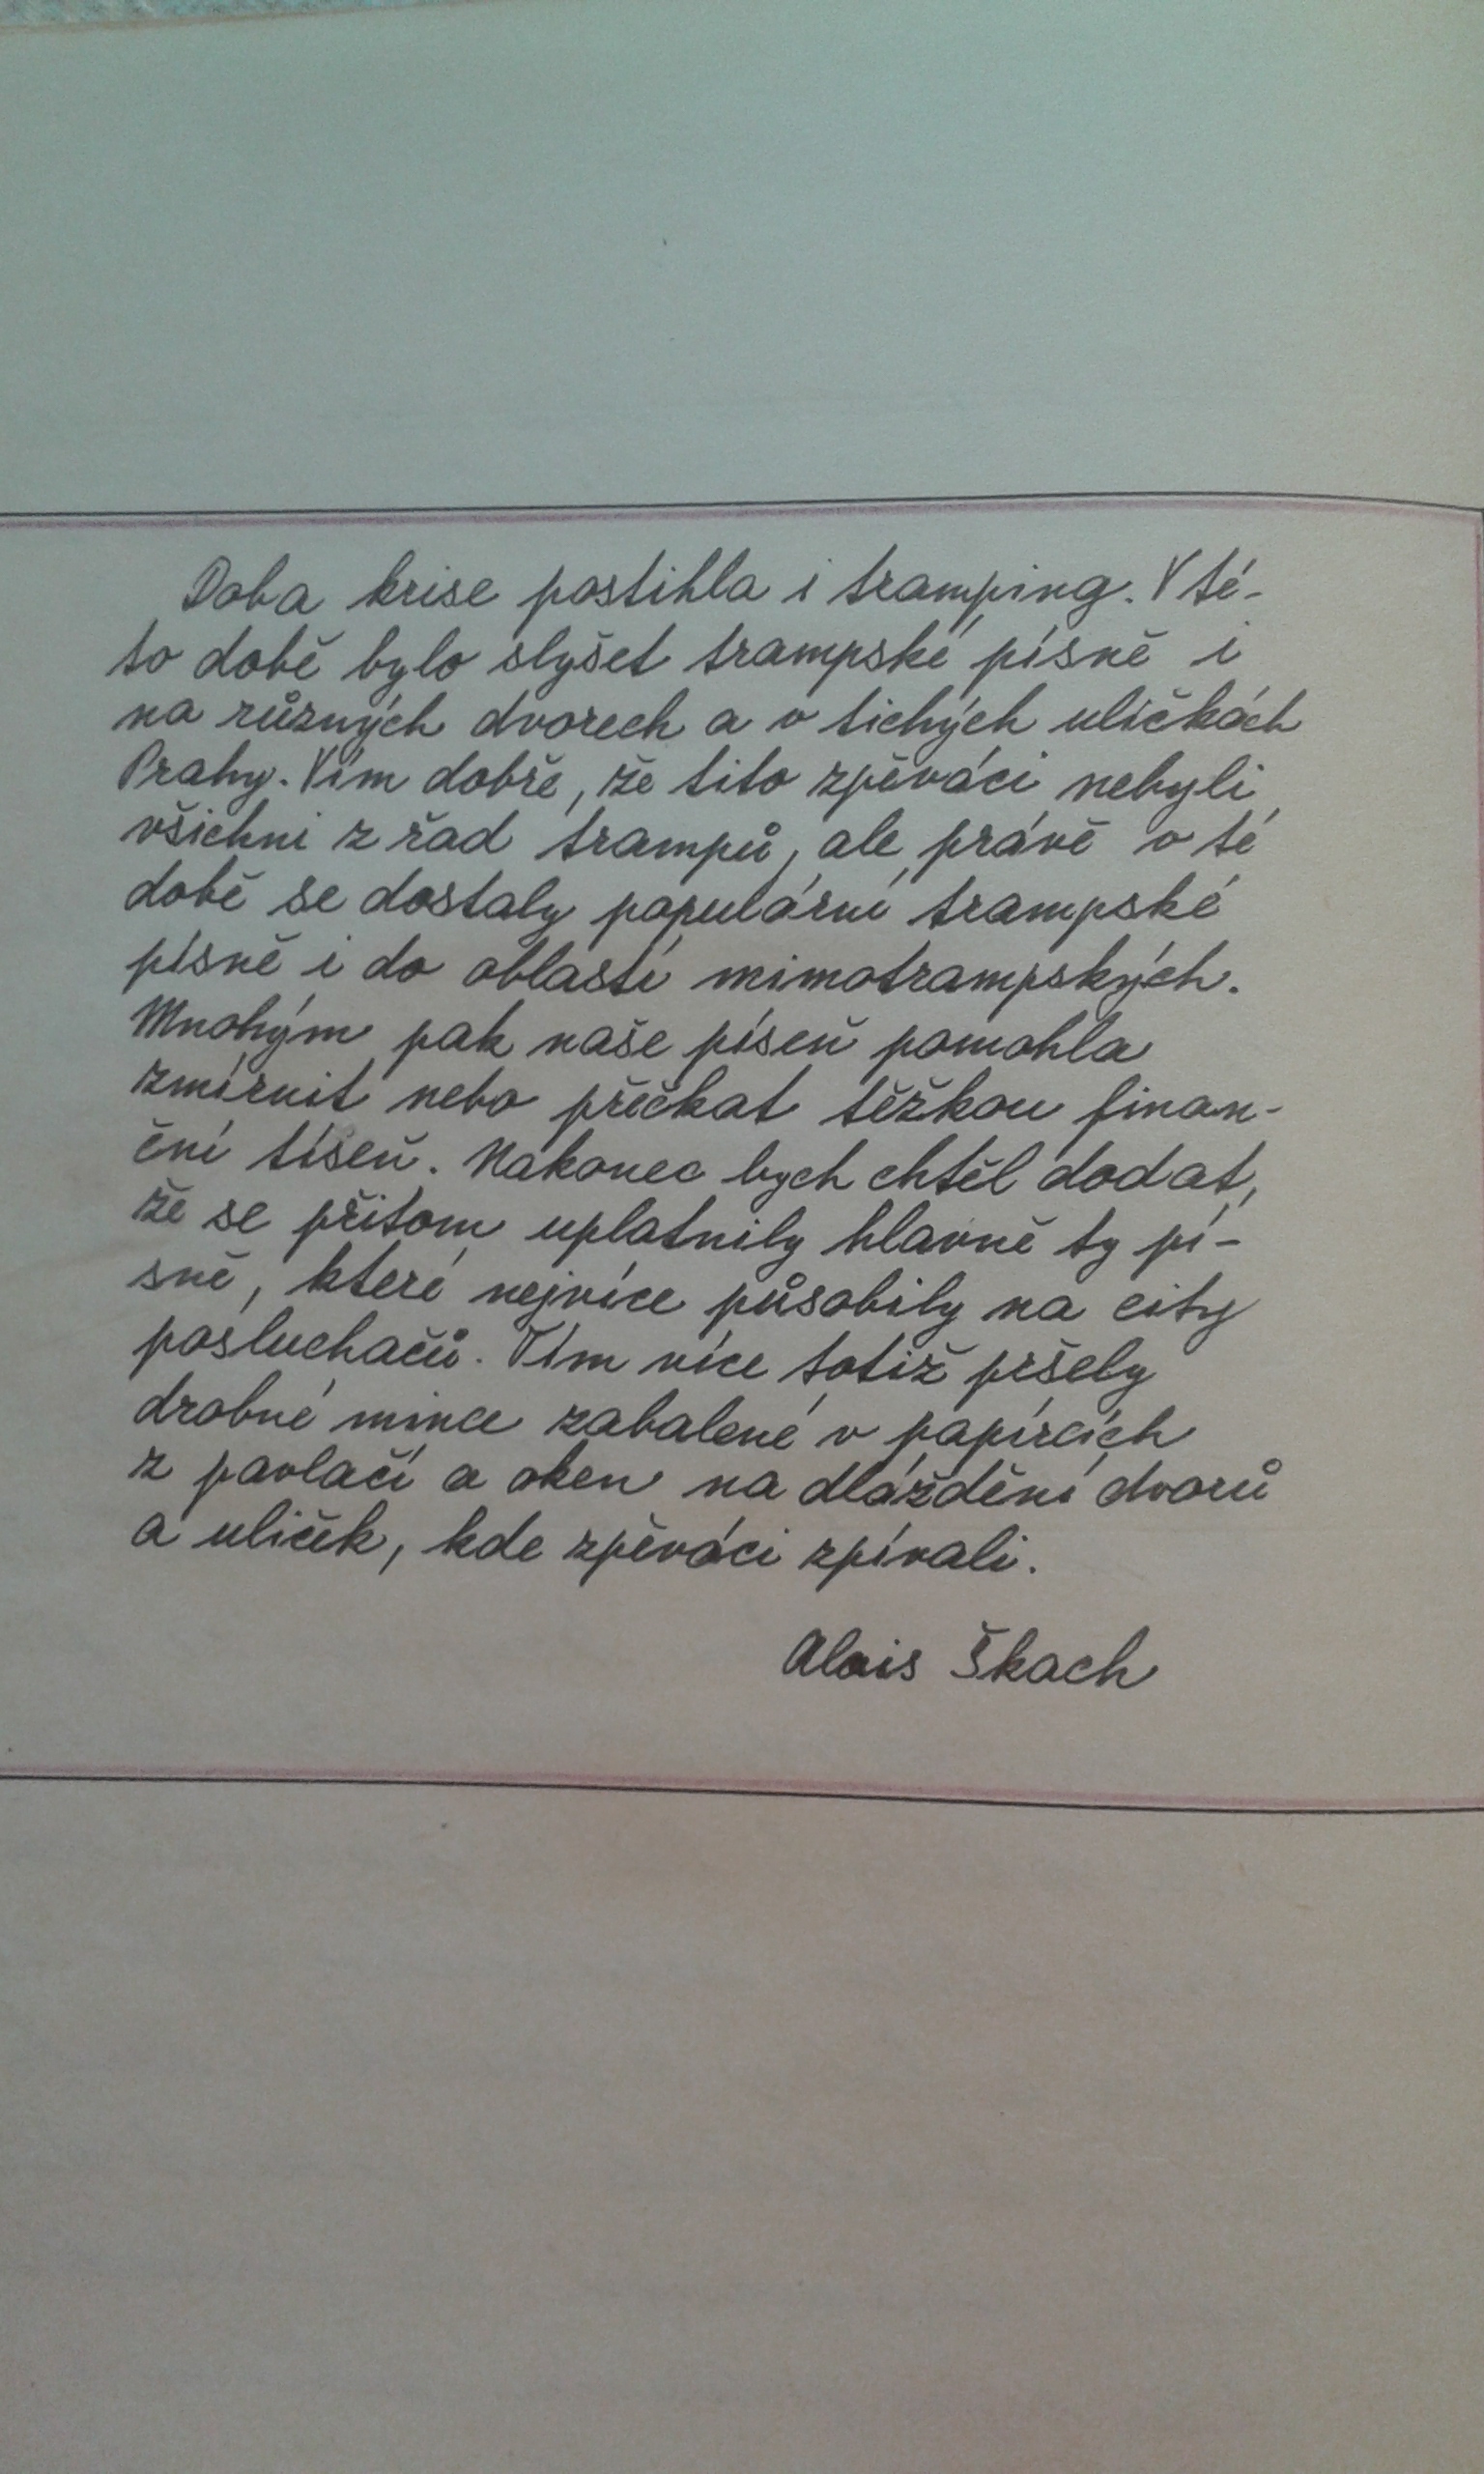 Doba krise postihla i tramping. V té-
to době bylo slyšet trampské písně i
na různých dvorech a v tichých uličkách
Prahy. Vím dobře, že tito zpěváci nebyli
všichni z řad trampů, ale právě v té
době se dostaly populární trampské
písně i do oblastí mimotrampských.
Mnohým pak naše píseň pomohla
zmírnit nebo přečkat těžkou finan-
ční tíseň. Nakonec bych chtěl dodat,
že se přitom uplatnily hlavně ty pí-
sně, které nejvíce působily na city
posluchačů. Tím více totiž pršely
drobné mince zabalené v papírcích
z pavlačí a oken na dláždění dvorů
a uliček, kde zpěváci zpívali.
Alois Škach